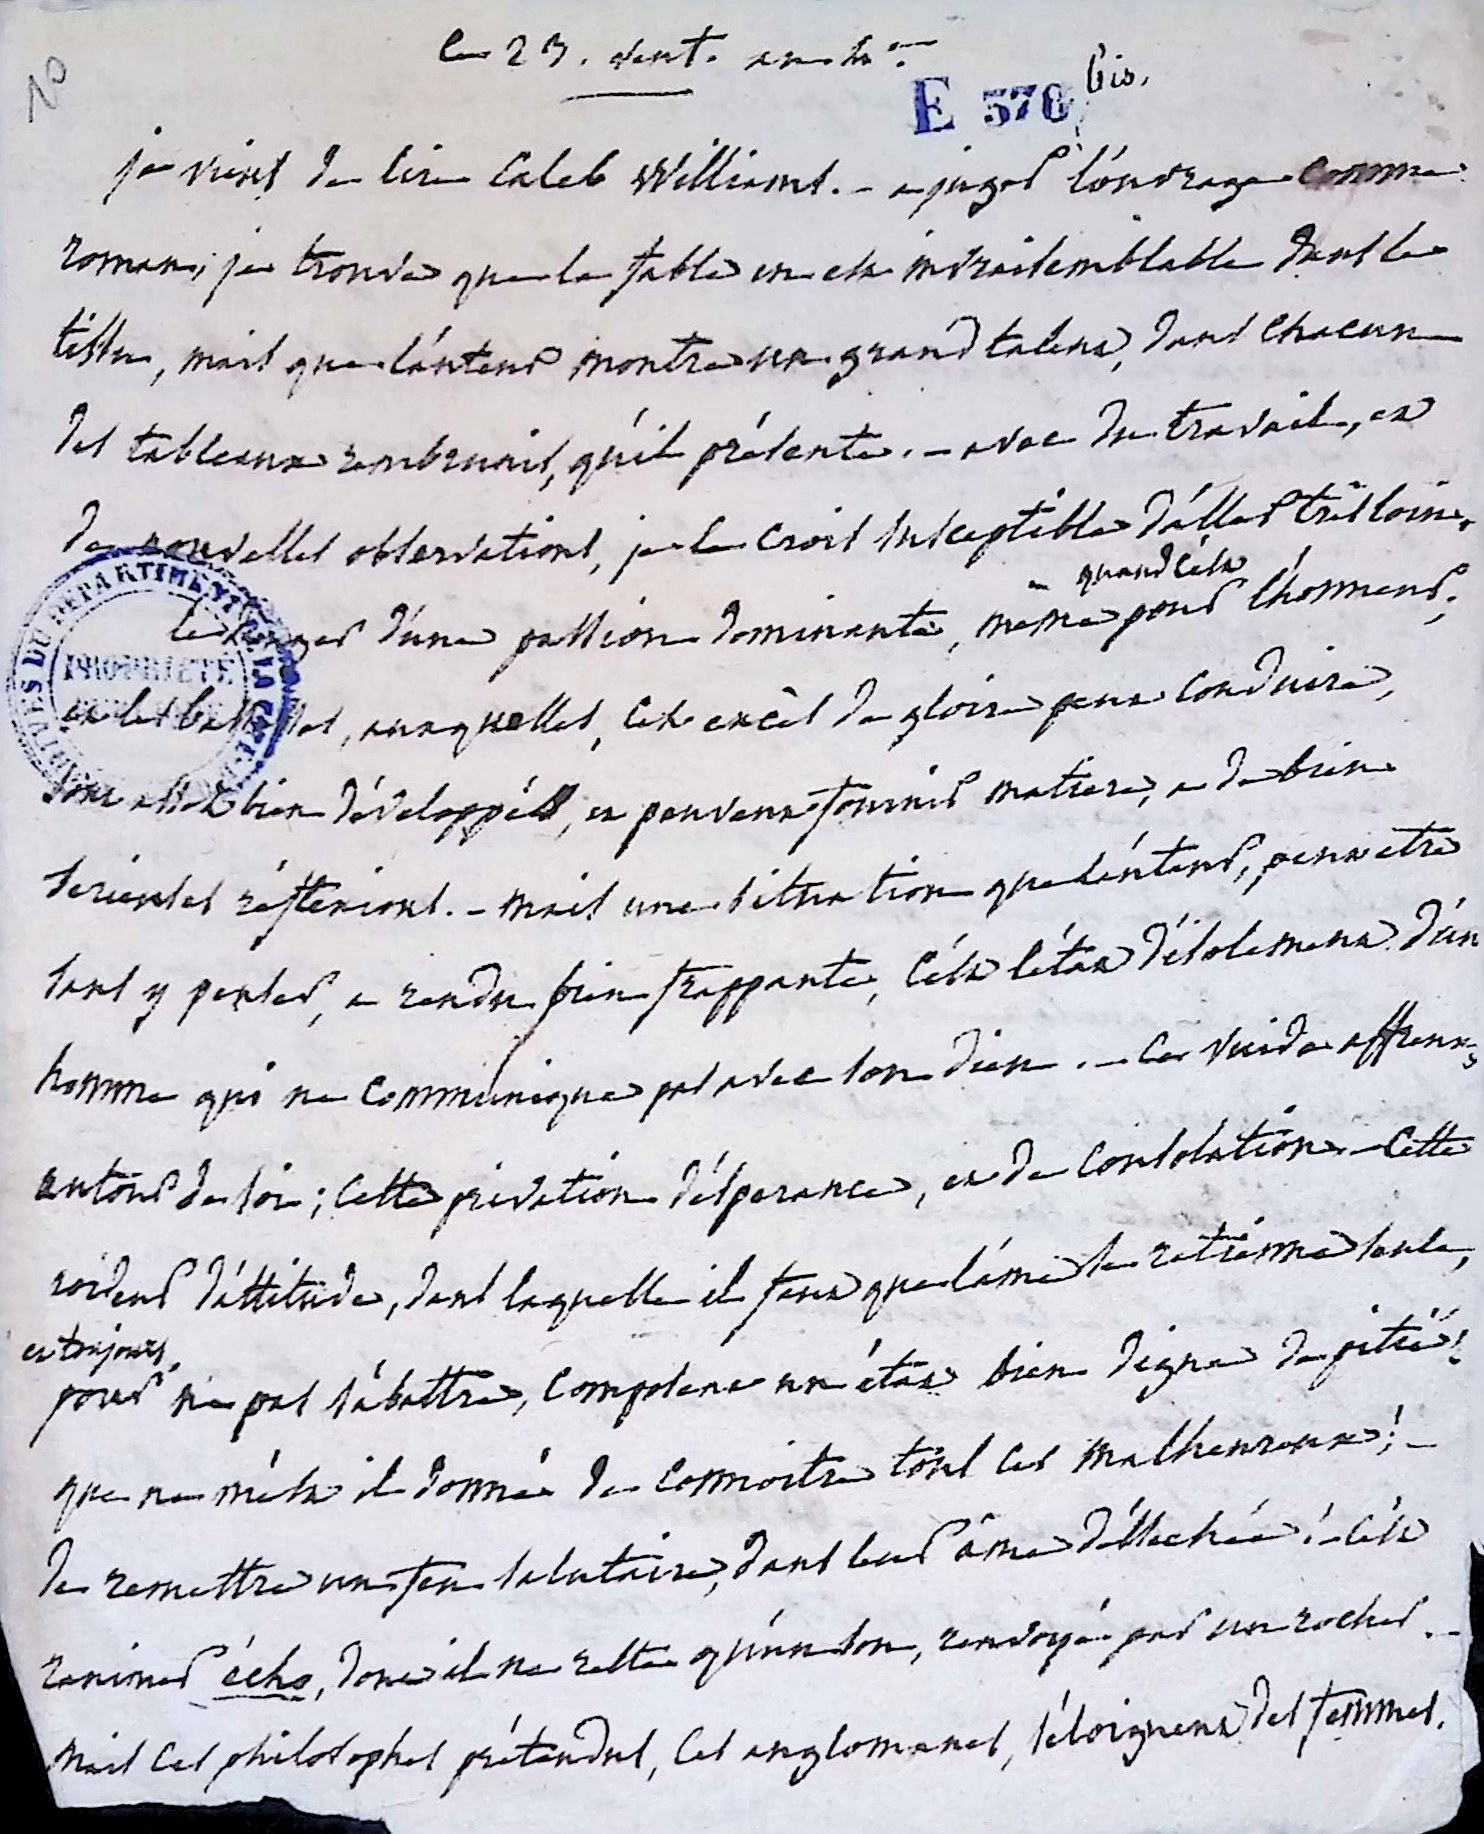 le 23. vent. an
E 576 bis.
je viens de lire Caleb Williams. - a juger l'ouvrage comme
roman, je trouve que la fable en est invraisemblable dans le
tissu, mais que l'auteur montre un grand talent, dans chacun
des tableaux rembrunis, qu'il présente. - avec du travail, et
de nouvelles observations, je le crois susceptible d'aller très loin.
quand c'est
le danger d'une passion dominante, même pour l'honneur,
et les bassesses, auxquelles, cet excès de gloire peut conduire,
sont assez bien développés, et peuvent fournir matiere, a de bien
serieuses réflexions. - mais une situation que l'auteur, peut etre
sans y penser, a rendu bien frappante, c'est l'état d'isolement d'un
homme qui ne communique pas avec son dieu. - ce vuide affreux,
autour de soi ; cette privation d'esperance, et de consolation. - cette
roideur d'attitude, dans laquelle il faut que l'ame se retienne seule,
et toujours,
pour ne pas s'abattre, composent un état bien digne de pitié !
que ne m'est il donné de connoitre tous ces malheureux ! -
de remettre un feu salutaire, dans leur âme désséchée ! - c'est
ranimer écho, dont il ne reste qu'un son, renvoyé par un rocher. -
mais ces philosophes prétendus, ces anglomanes, s'éloignent des femmes.
ARCHIVES DU DEPARTEMENT DE LA
PROPRIÉTÉ